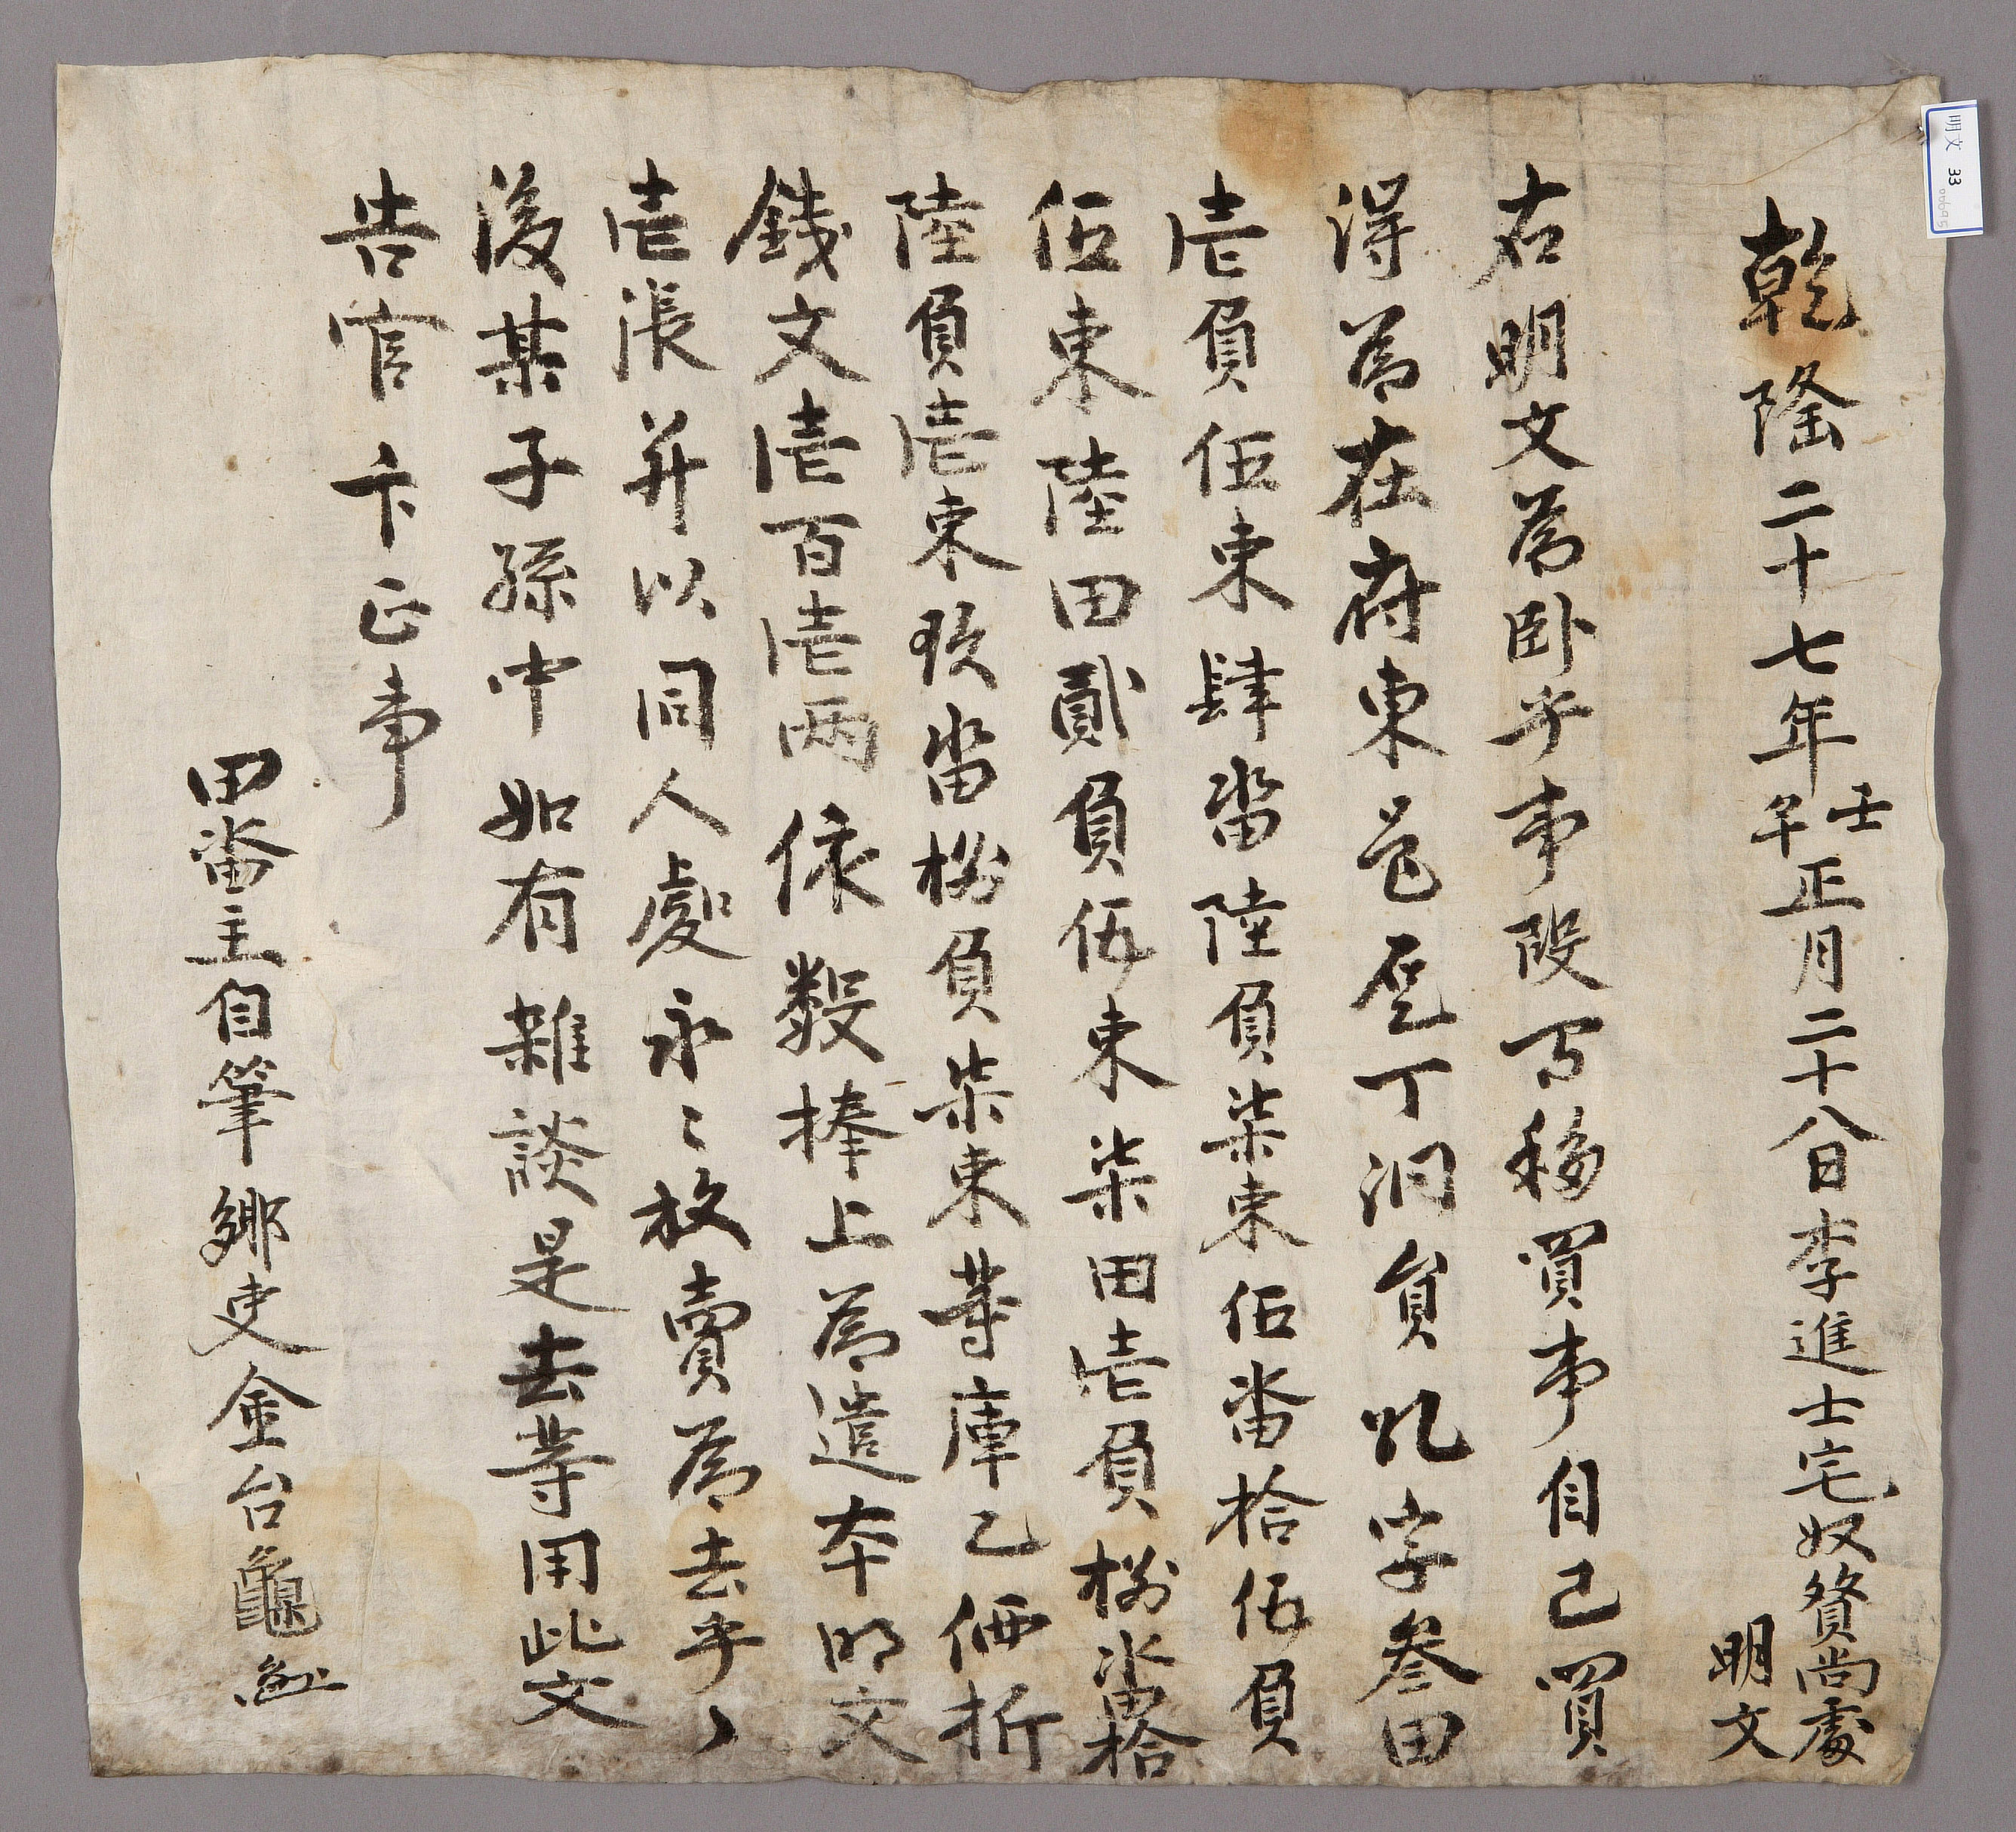 乾隆二十七年壬午正月二十八日李進士宅奴贇尚處
明文
右明文爲臥乎事段 移買事自己買
得爲在府東邑 丁洞員 字叁田
壱負伍束肆畓陸負柒束伍畓拾伍負
伍束陸田貳負伍束柒田壱負捌畓拾
陸負壱束玖畓捌負柒束等庫乙価折
錢文壱百壱兩依數捧上爲遣本明文
壱張幷以同人處永〻放賣爲去乎
後某子孫中如有雜談是去等用此文
告官卞正事
田畓主自筆鄕吏金台龜
明文 33